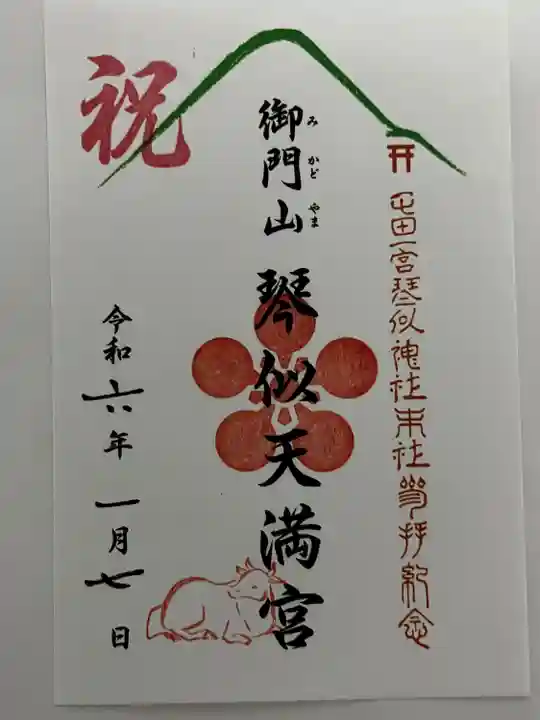 祝
屯田一宮琴似神社末社参拝紀念
御門山
みかどやま
琴似天満宮
令和六年一月七日